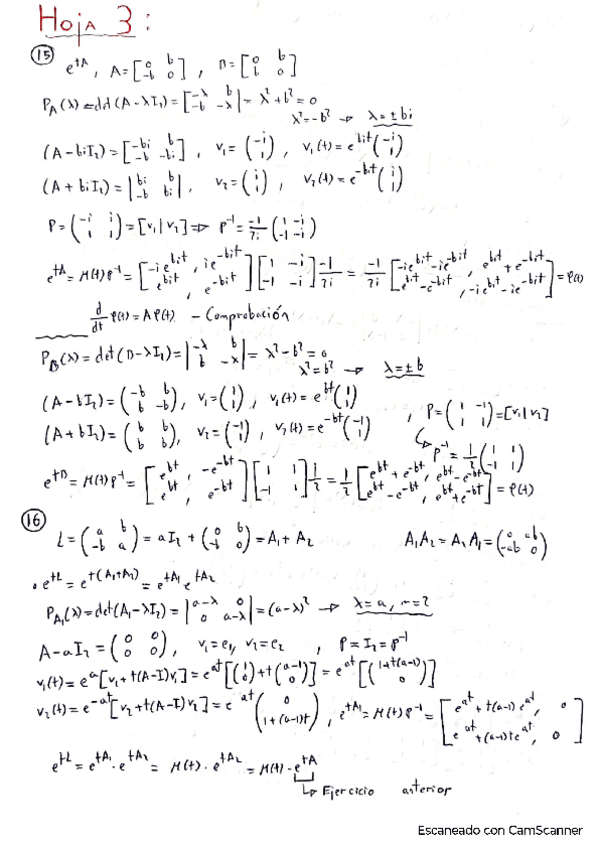 Hoja 3:
(15) e^{tA}, A=[0 b; -b 0], B=[0 b; b 0]
P_A(λ)=det(A-λI₂)=|-λ b; -b -λ|=λ²+b²=0
λ²=-b² → λ=±bi
(A-biI₂)=[-bi b; -b -bi], v₁=(-i; 1), v₁(t)=e^{bit}(-i; 1)
(A+biI₂)=|bi b; -b bi|, v₂=(i; 1), v₂(t)=e^{-bit}(i; 1)
P=(-i i; 1 1)=[v₁|v₂] ⇒ P⁻¹=-1/2i (1 -i; -1 -i)
e^{tA}=M(t)P⁻¹=[-ie^{bit}, ie^{-bit}; e^{bit}, e^{-bit}][1 -i; -1 -i] -1/2i = -1/2i [-ie^{bit}-ie^{-bit}, e^{bit}+e^{-bit}; e^{bit}-e^{-bit}, -ie^{bit}-ie^{-bit}]=φ(t)
d/dt φ(t)=Aφ(t) - Comprobación
P_B(λ)=det(B-λI₂)=|-λ b; b -λ|=λ²-b²=0
λ²=b² → λ=±b
(A-bI₂)=(-b b; b -b), v₁=(1; 1), v₁(t)=e^{bt}(1; 1)
, P=(1 -1; 1 1)=[v₁|v₂]
(A+bI₂)=(b b; b b), v₂=(-1; 1), v₂(t)=e^{-bt}(-1; 1)
↳ P⁻¹=1/2(1 1; -1 1)
e^{tB}=M(t)P⁻¹=[e^{bt}, -e^{-bt}; e^{bt}, e^{-bt}][1 1; -1 1]1/2=1/2[e^{bt}+e^{-bt}, e^{bt}-e^{-bt}; e^{bt}-e^{-bt}, e^{bt}+e^{-bt}]=φ(t)
(16) L=(a b; -b a)=aI₂+(0 b; -b 0)=A₁+A₂ A₁A₂=A₂A₁=(0 ab; -ab 0)
• e^{tL}=e^{t(A₁+A₂)}=e^{tA₁}e^{tA₂}
P_{A₁}(λ)=det(A₁-λI₂)=|a-λ 0; 0 a-λ|=(a-λ)² → λ=a, m=2
A-aI₂=(0 0; 0 0), v₁=e₁, v₂=e₂, P=I₂=P⁻¹
v₁(t)=e^{a}[v₁+t(A-I)v₁]=e^{at}[(1; 0)+t(a-1; 0)]=e^{at}[(1+t(a-1); 0)]
v₂(t)=e^{-at}[v₂+t(A-I)v₂]=e^{at}(0; 1+(a-1)t), e^{tA₁}=M(t)P⁻¹=[e^{at}+t(a-1)e^{at}, 0; e^{at}+(a-1)te^{at}, 0]
e^{tL}=e^{tA₁}·e^{tA₂}=M(t)·e^{tA₂}=M(t)·e^{tA}
↳ Ejercicio anterior
Escaneado con CamScanner